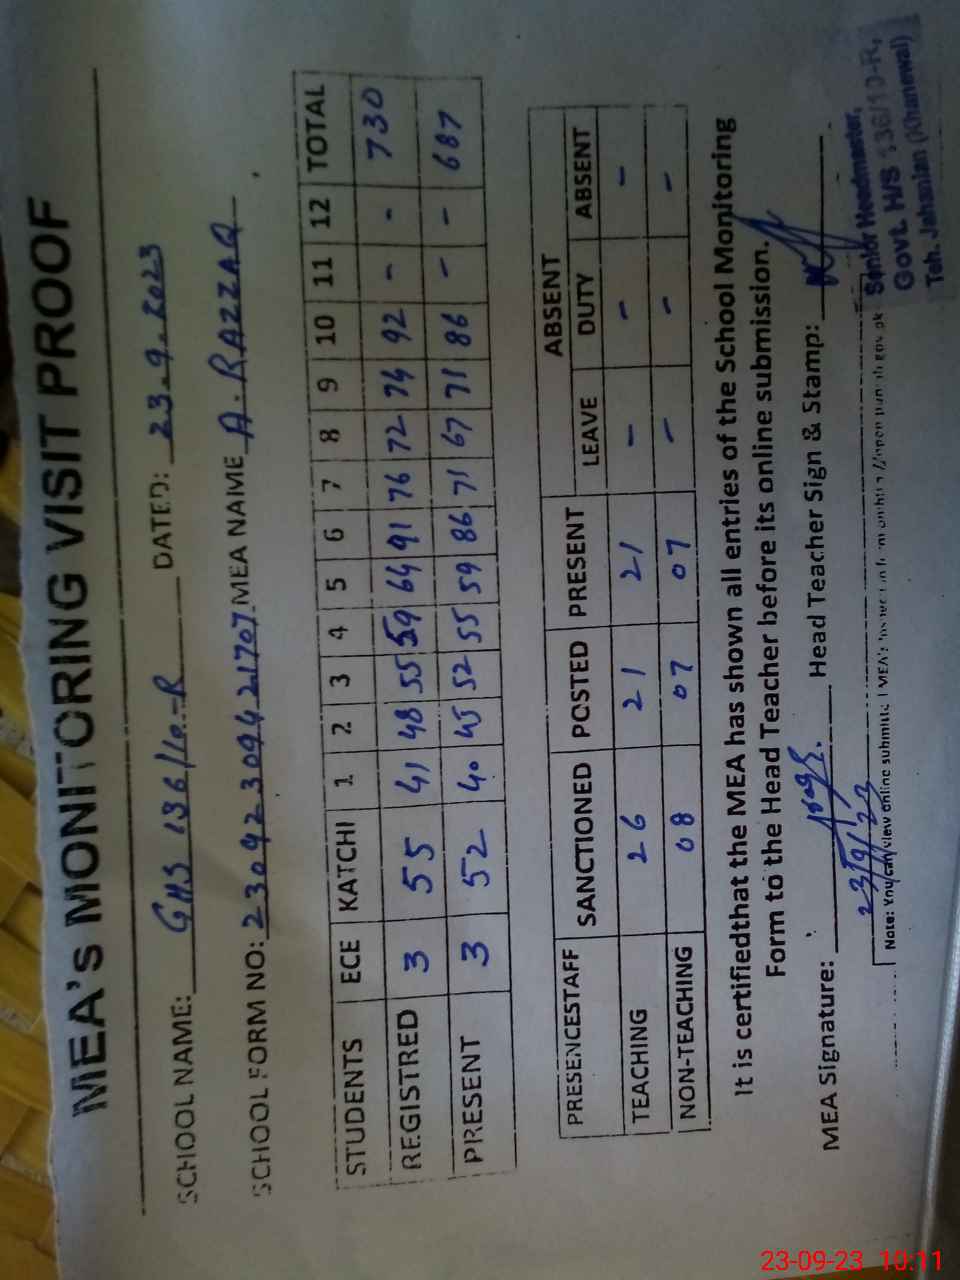 MEA's MONITORING VISIT PROOF
SCHOOL NAME: GHS 136/10-R DATED: 23.9.2023
SCHOOL FORM NO: 230942309421707 MEA NAME A.RAZZAQ
STUDENTS ECE KATCHI 1 2 3 4 5 6 7 8 9 10 11 12 TOTAL
REGISTRED 3 55 41 48 55 59 64 91 76 72 74 92 - - 730
PRESENT 3 52 40 45 52 55 59 86 71 67 71 86 - - 687
PRESENCESTAFF SANCTIONED POSTED PRESENT ABSENT
LEAVE DUTY ABSENT
TEACHING 26 21 21 - - -
NON-TEACHING 08 07 07 - - -
It is certifiedthat the MEA has shown all entries of the School Monitoring
Form to the Head Teacher before its online submission.
MEA Signature: Head Teacher Sign & Stamp:
23/9/23
Senior Headmaster,
Govt. H/S 136/10-R,
Teh. Jahanian (Khanewal)
Note: You can view online submitted MEA's
23-09-23 10:11